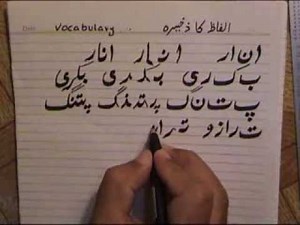 Vocabulary الفاظ کا ذخیرہ
ا ن ا ر انار انار
ب ک ر ی بکری بکری
پ ت ن گ پتنگ پتنگ
ت ر ا ز و ترا